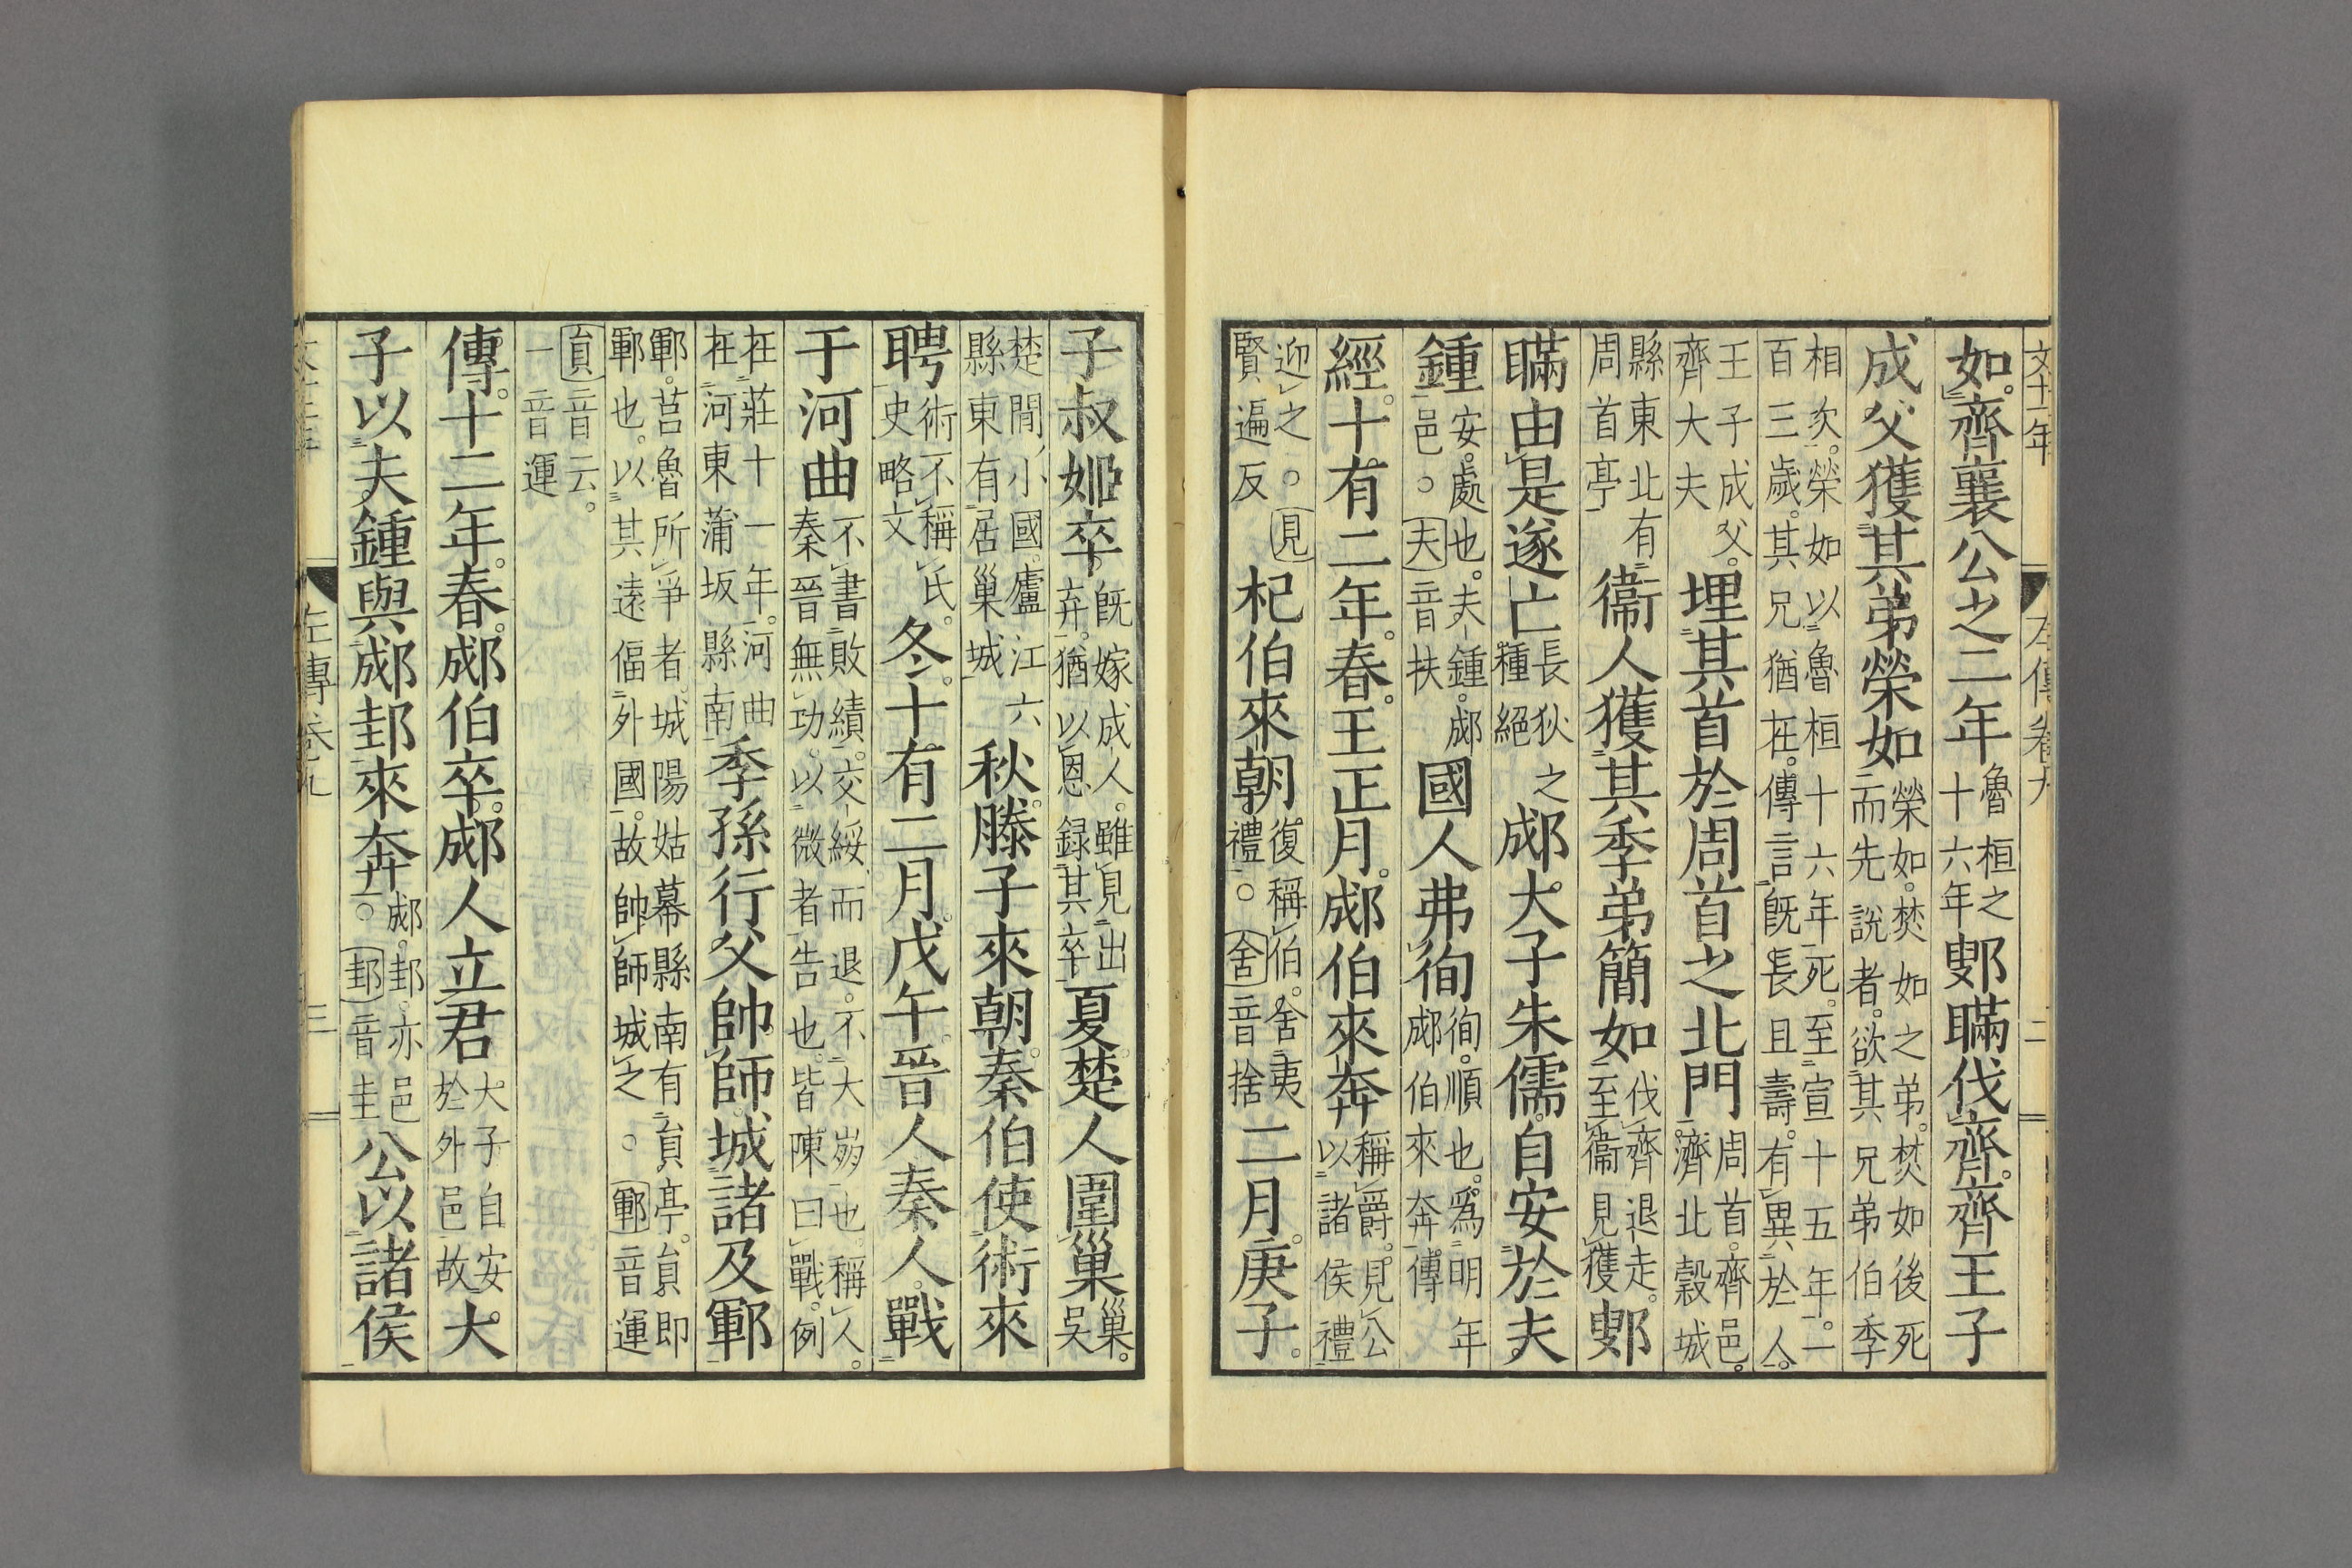 文十一年 左傳卷九 二
如齊襄公之二年魯桓之十六年鄋瞞伐齊齊王子
成父獲其弟榮如榮如焚如之弟焚如後死而先說者欲其兄弟伯季
相次榮如以魯桓十六年死至宣十五年一百三歲其兄猶在傳言既長且壽有異於人
王子成父齊大夫埋其首於周首之北門周首齊邑濟北穀城
縣東北有周首亭衞人獲其季弟簡如伐齊退走至衞見獲鄋
瞞由是遂亡長狄之種絕郕大子朱儒自安於夫
鍾安處也夫鍾郕邑○夫音扶國人弗徇徇順也爲明年郕伯來奔傳
經十有二年春王正月郕伯來奔稱爵見公以諸侯禮
迎之○見賢遍反杞伯來朝復稱伯舍夷禮○舍音捨二月庚子
子叔姬卒既嫁成人雖見出弃猶以恩録其卒夏楚人圍巢巢吳
楚間小國廬江六縣東有居巢城秋滕子來朝秦伯使術來
聘術不稱氏史略文冬十有二月戊午晉人秦人戰
于河曲不書敗績交綏而退不大崩也稱人秦晉無功以微者告也皆陳曰戰例
在莊十一年河曲在河東蒲坂縣南季孫行父帥師城諸及鄆
鄆莒魯所爭者城陽姑幕縣南有員亭員即鄆也以其遠偪外國故帥師城之○鄆音運
員音云一音運
傳十二年春郕伯卒郕人立君大子自安於外邑故大
子以夫鍾與郕邽來奔郕邽亦邑○邽音圭公以諸侯
左傳卷九 三